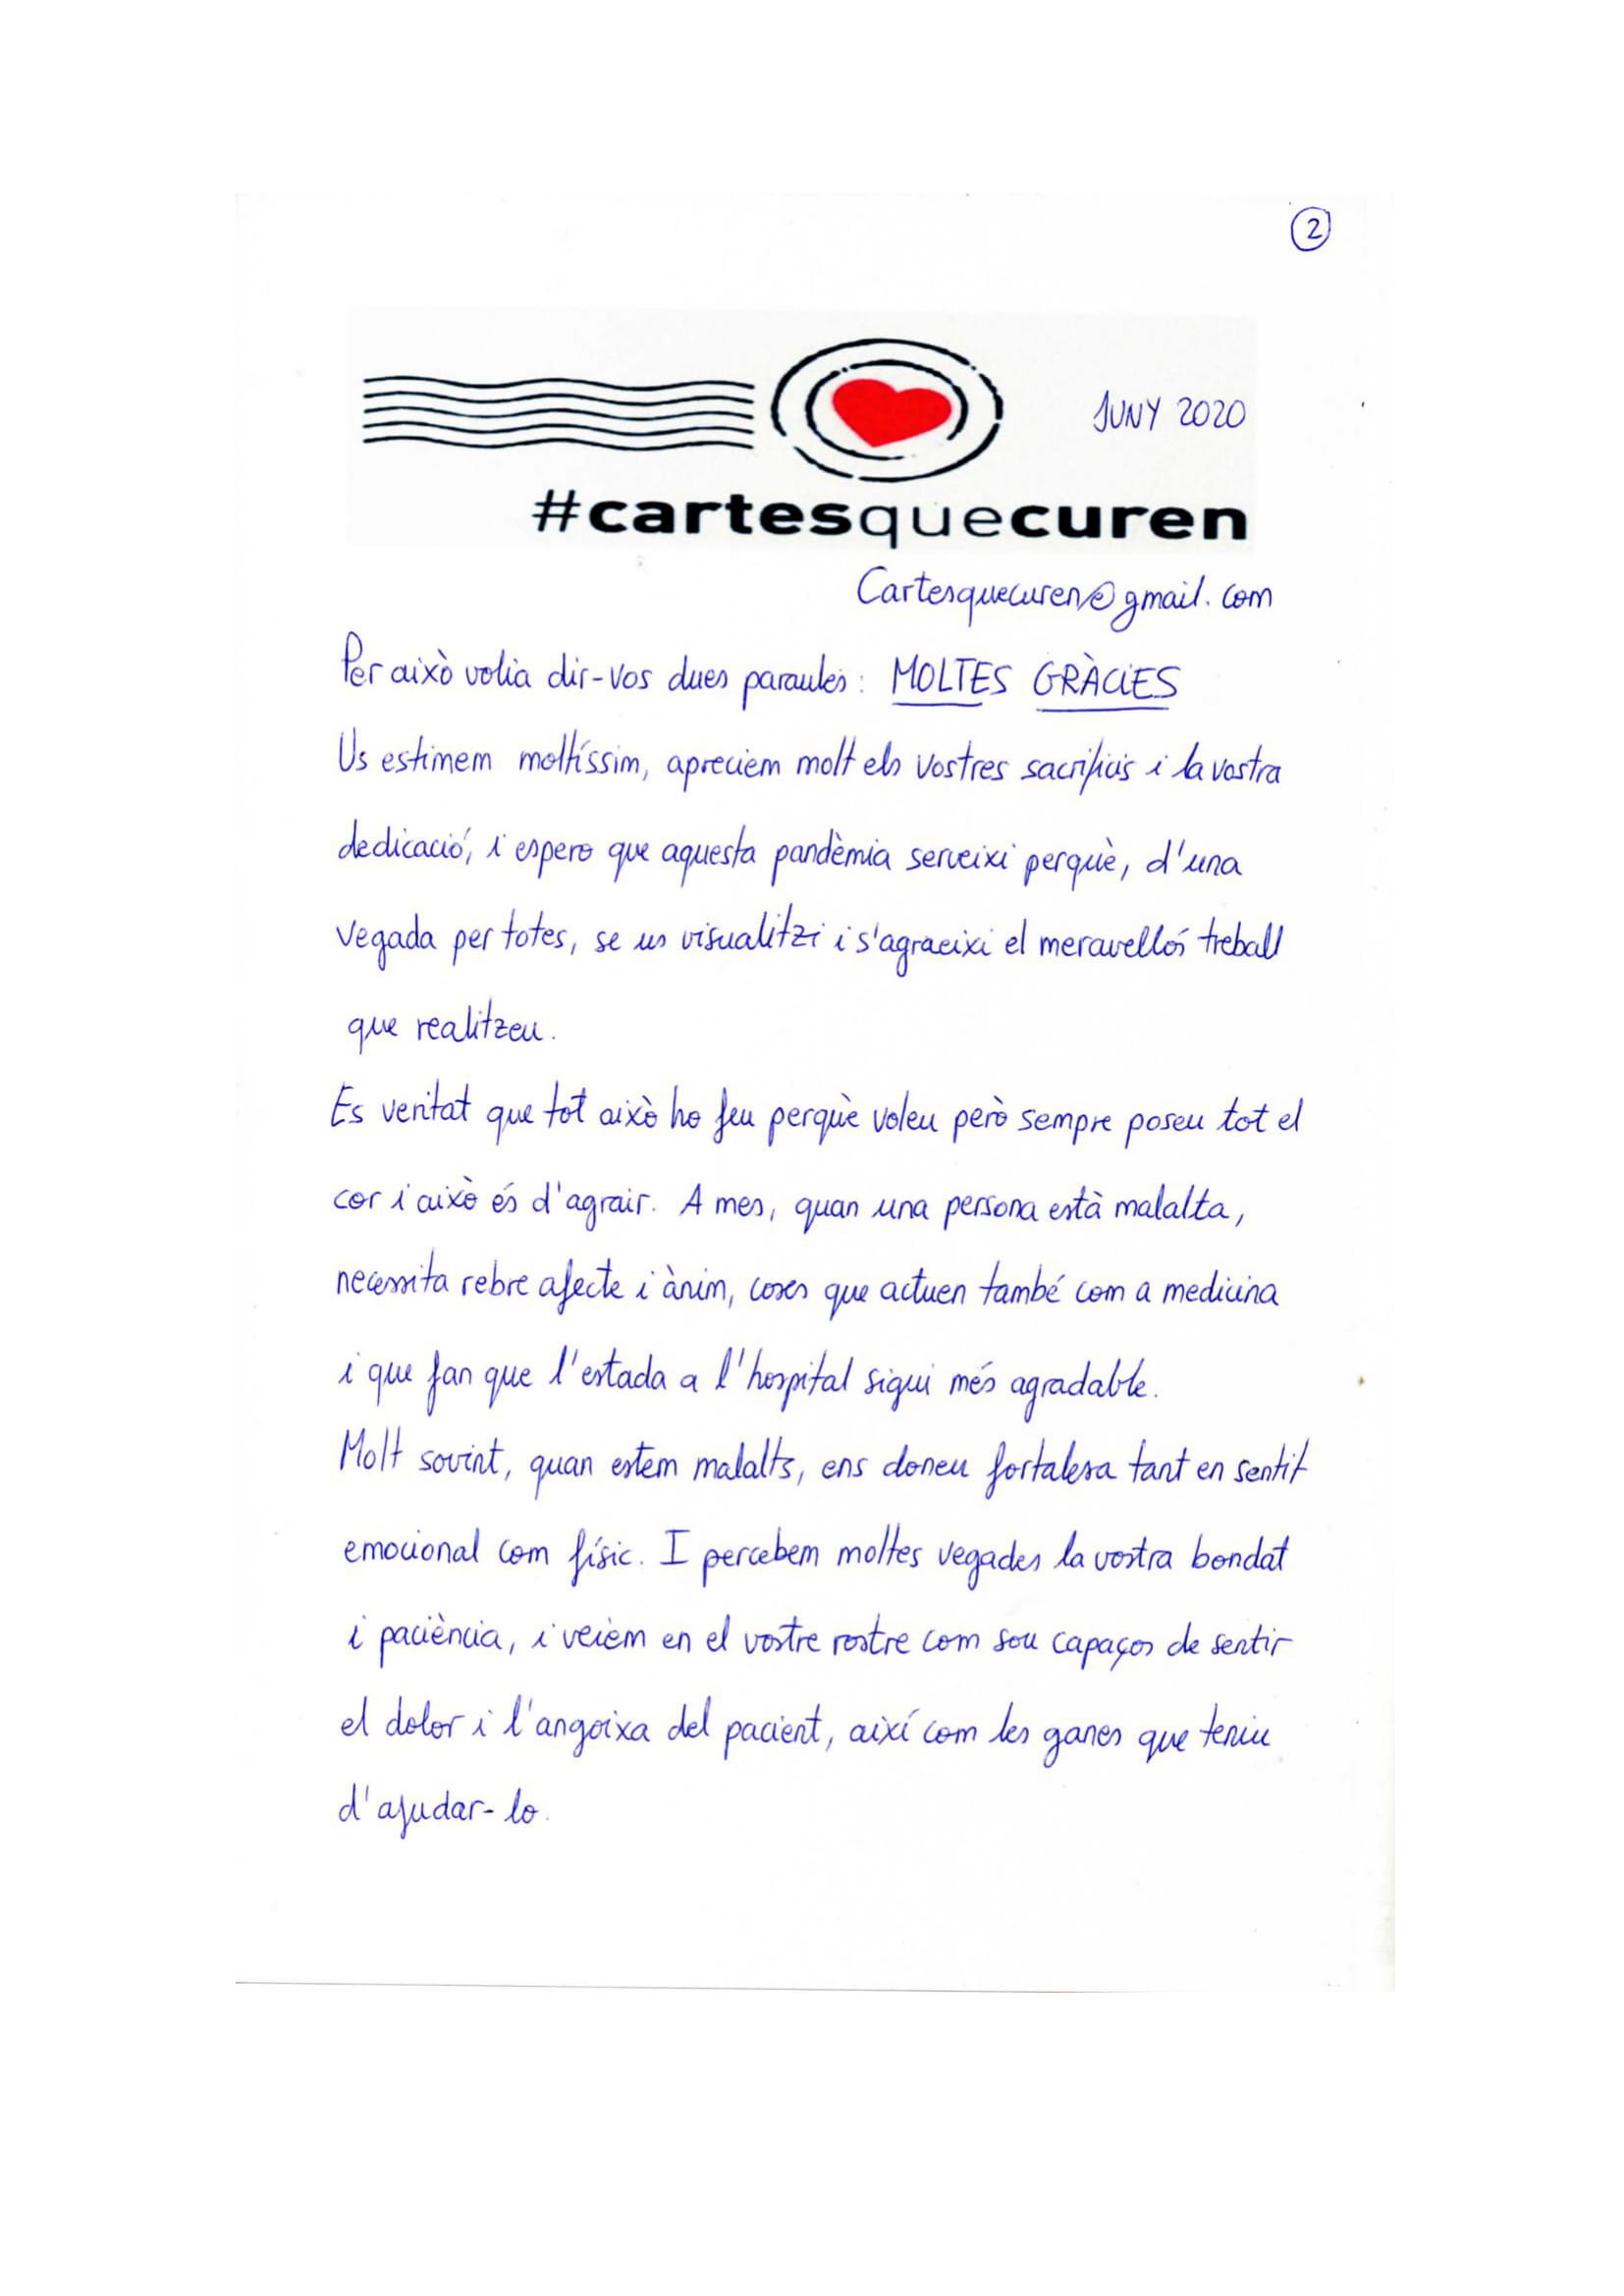 2
JUNY 2020
#cartesquecuren
Cartesquecuren@gmail.com
Per això volia dir-vos dues paraules: MOLTES GRÀCIES
Us estimem moltíssim, apreciem molt els vostres sacrificis i la vostra
dedicació, i espero que aquesta pandèmia serveixi perquè, d'una
vegada per totes, se us visualitzi i s'agraeixi el meravellós treball
que realitzeu.
Es veritat que tot això ho feu perquè voleu però sempre poseu tot el
cor i això és d'agrair. A mes, quan una persona està malalta,
necessita rebre afecte i ànim, coses que actuen també com a medicina
i que fan que l'estada a l'hospital sigui més agradable.
Molt sovint, quan estem malalts, ens doneu fortalesa tant en sentit
emocional com físic. I percebem moltes vegades la vostra bondat
i paciència, i veiem en el vostre rostre com sou capaços de sentir
el dolor i l'angoixa del pacient, així com les ganes que teniu
d'ajudar-lo.